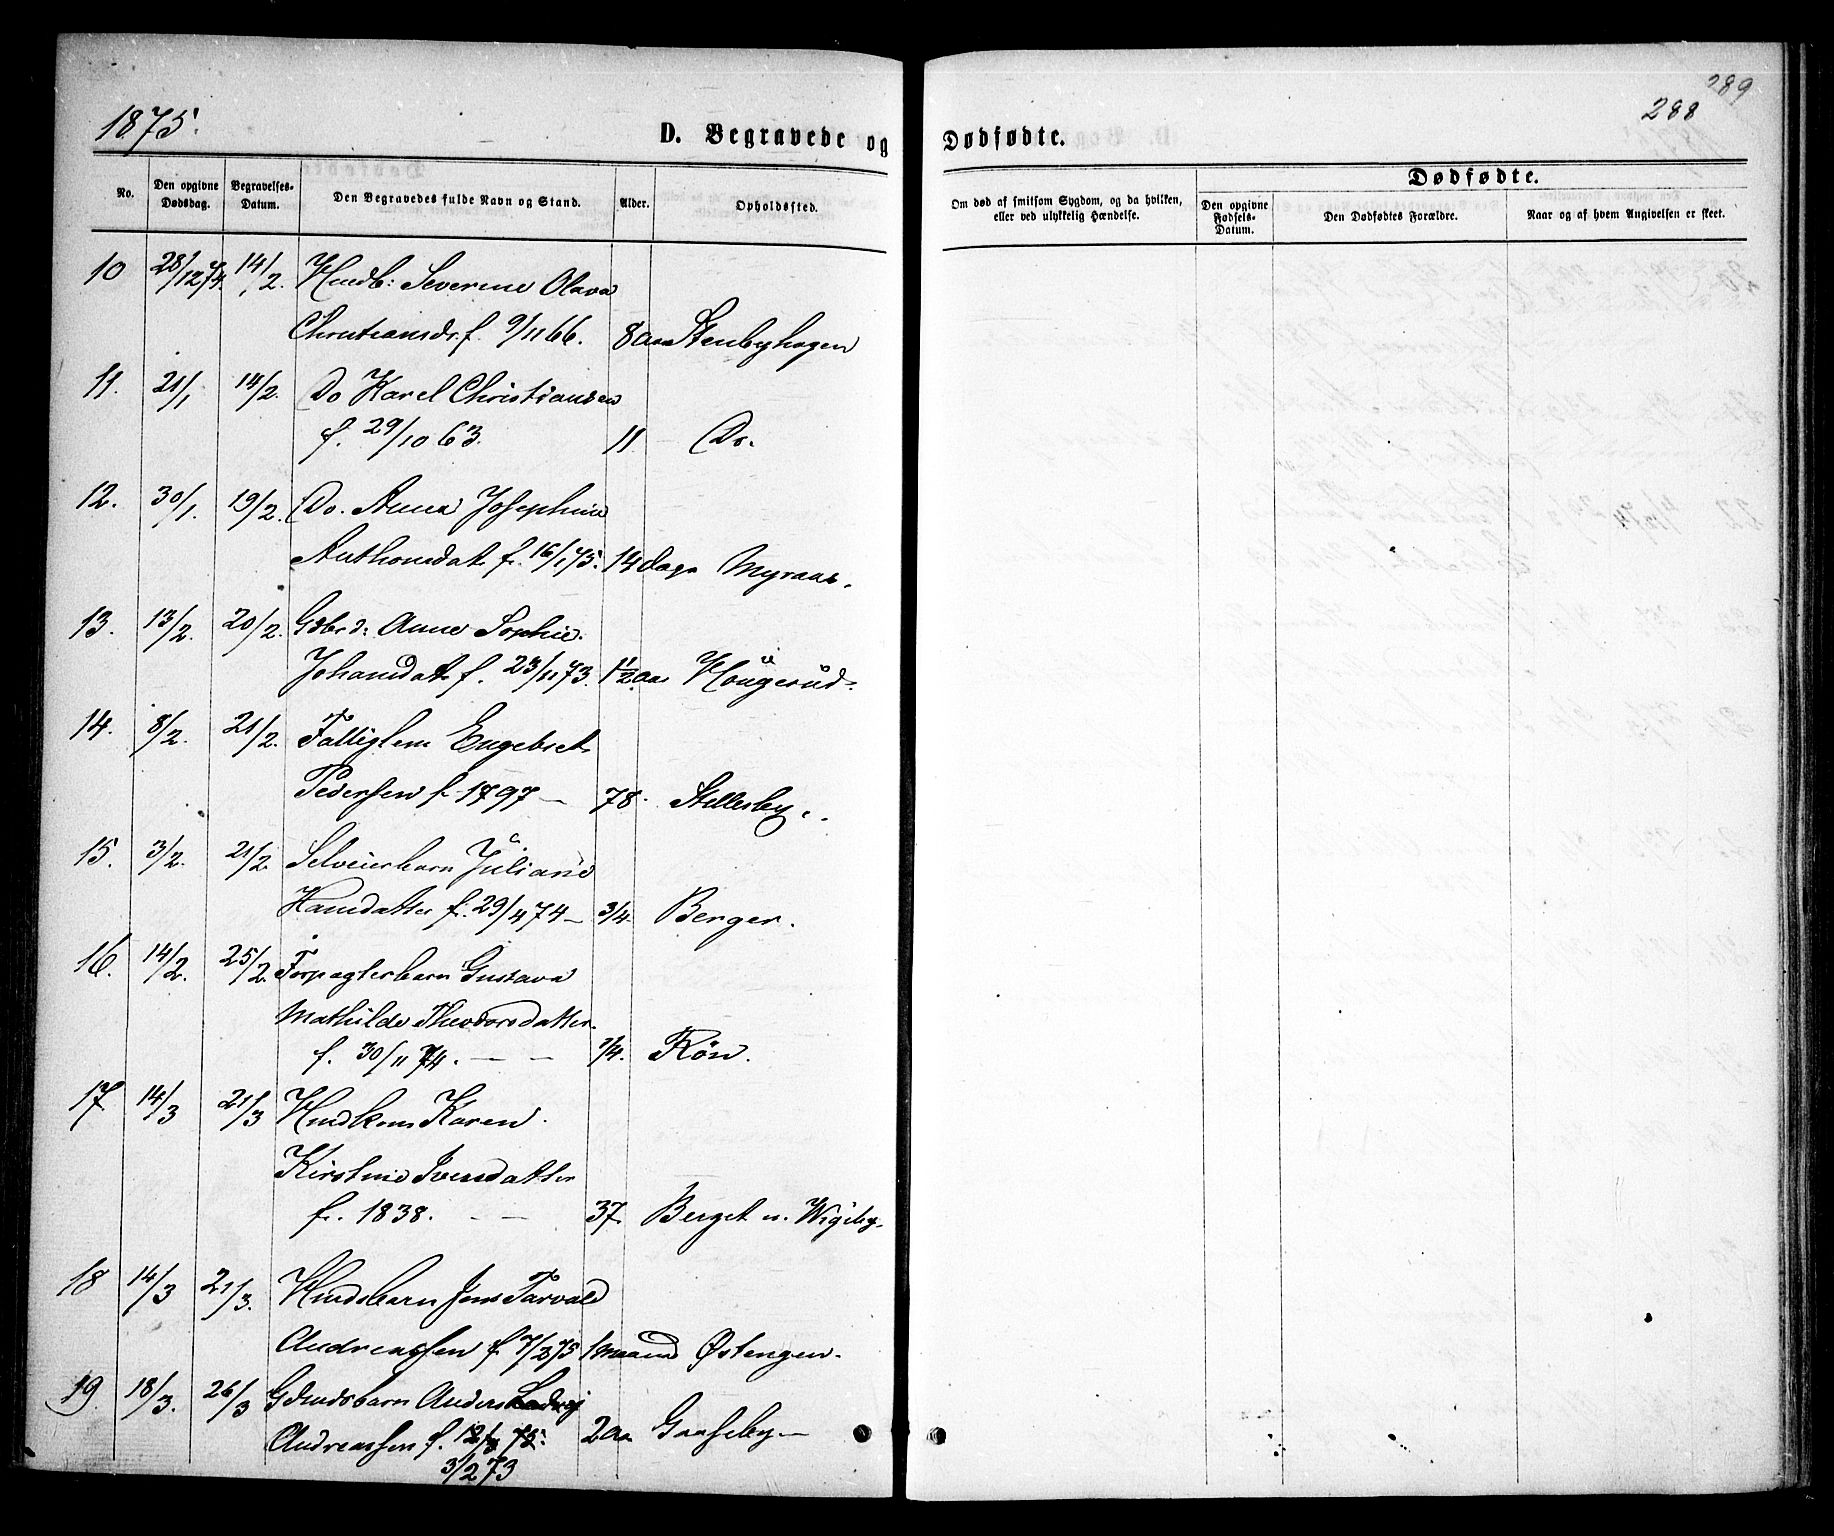 289
288
1875.
D. Begravede og
Dødfødte.
No.
Den opgivne Dødsdag.
Begravelses-Datum.
Den Begravedes fulde Navn og Stand.
Alder.
Opholdssted.
Om død af smitsom Sygdom, og da hvilken, eller ved ulykkelig Hændelse.
Dødfødte.
Den opgivne Fødsels-Datum.
Den Dødfødtes Forældre.
Naar og af hvem Angivelsen er skeet.
10 28/12 74. 14/2. Hmdb: Severine Olava
Christiansdr. f. 9/11 66. 8 aar Stenbyhagen
11. 21/1 14/2. Do Karel Christiansen
f. 29/10 63. 11 Do.
12. 30/1. 19/2. Do. Anna Josephine
Anthonsdat f. 16/1 75. 14 dage Myraas.
13. 13/2. 20/2. Gdbrd: Anne Sophie
Johansdat f. 23/11 73. 1 1/2 aar Hougerud.
14. 8/2. 21/2. Fattiglem Engebret
Pedersen f. 1797 — 78. Stillesby.
15. 3/2. 21/2. Selveierbarn Juliane
Hansdatter f. 29/4 74 — 3/4. Berger.
16. 14/2. 25/2. Forpagterbarn Gustava
Mathilde Theodorsdatter
f. 30/11 74. — — 1/4. Rön.
17 14/3 21/3 Hmdkone Karen
Kirstine Iversdatter
f. 1838. — — 37. Berget u. Wigeby.
18 14/3 21/3. Hmdsbarn Jens Torvald
Andreassen f. 7/2 75 1 maaned Østengen.
19. 18/3. 26/3 Gdmdsbarn Anders Ludvig
Andreassen f. 2 aar Gaaseby —
3/2 73